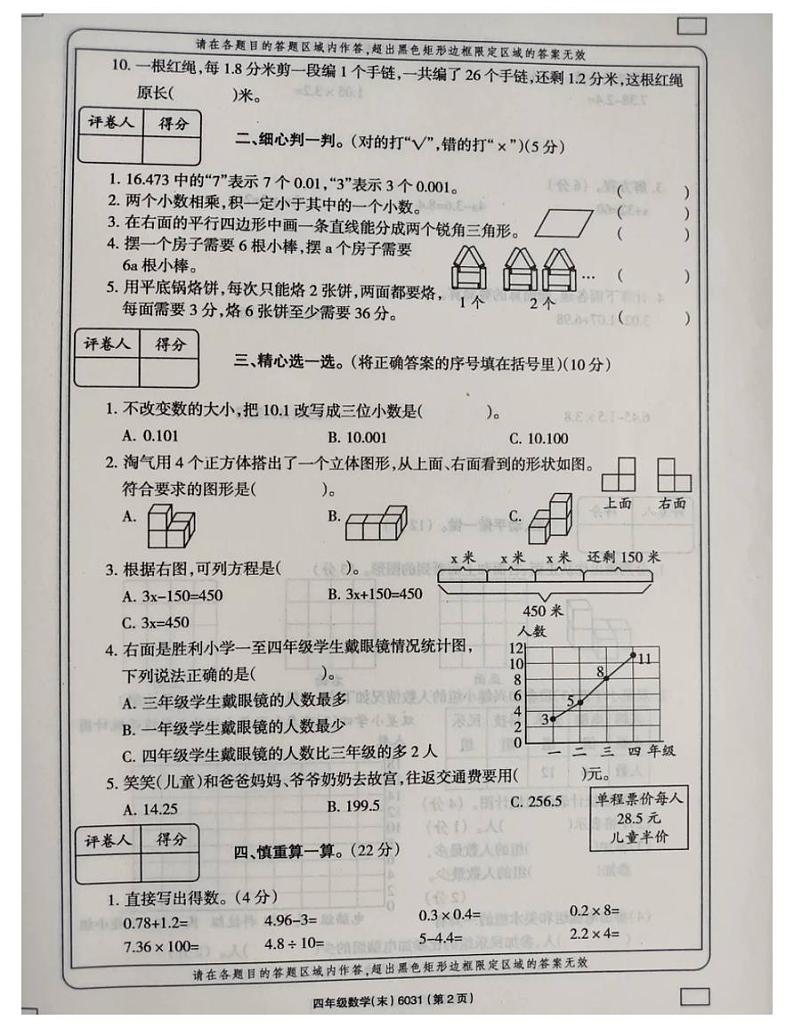 请在各题目的答题区域内作答,超出黑色矩形边框限定区域的答案无效
10. 一根红绳,每1.8分米剪一段编1个手链,一共编了26个手链,还剩1.2分米,这根红绳
原长(　　)米。
评卷人 得分
二、细心判一判。(对的打“√”,错的打“×”)(5分)
1. 16.473中的“7”表示7个0.01,“3”表示3个0.001。 (　　)
2. 两个小数相乘,积一定小于其中的一个小数。 (　　)
3. 在右面的平行四边形中画一条直线能分成两个锐角三角形。 (　　)
4. 摆一个房子需要6根小棒,摆a个房子需要
6a根小棒。 … (　　)
1个 2个
5. 用平底锅烙饼,每次只能烙2张饼,两面都要烙,
每面需要3分,烙6张饼至少需要36分。 (　　)
评卷人 得分
三、精心选一选。(将正确答案的序号填在括号里)(10分)
1. 不改变数的大小,把10.1改写成三位小数是(　　)。
A. 0.101 B. 10.001 C. 10.100
2. 淘气用4个正方体搭出了一个立体图形,从上面、右面看到的形状如图。
符合要求的图形是(　　)。
上面 右面
A. B. C.
3. 根据右图,可列方程是(　　)。
x米 x米 x米 还剩150米
450米
A. 3x-150=450 B. 3x+150=450
C. 3x=450
4. 右面是胜利小学一至四年级学生戴眼镜情况统计图,
下列说法正确的是(　　)。
A. 三年级学生戴眼镜的人数最多
B. 一年级学生戴眼镜的人数最少
C. 四年级学生戴眼镜的人数比三年级的多2人
人数
12
10
8
6
4
2
0
3 5 8 11
一 二 三 四 年级
5. 笑笑(儿童)和爸爸妈妈、爷爷奶奶去故宫,往返交通费要用(　　)元。
A. 14.25 B. 199.5 C. 256.5
单程票价每人
28.5元
儿童半价
评卷人 得分
四、慎重算一算。(22分)
1. 直接写出得数。(4分)
0.78+1.2= 4.96-3= 0.3×0.4= 0.2×8=
7.36×100= 4.8÷10= 5-4.4= 2.2×4=
请在各题目的答题区域内作答,超出黑色矩形边框限定区域的答案无效
四年级数学(末) 6031 (第2页)